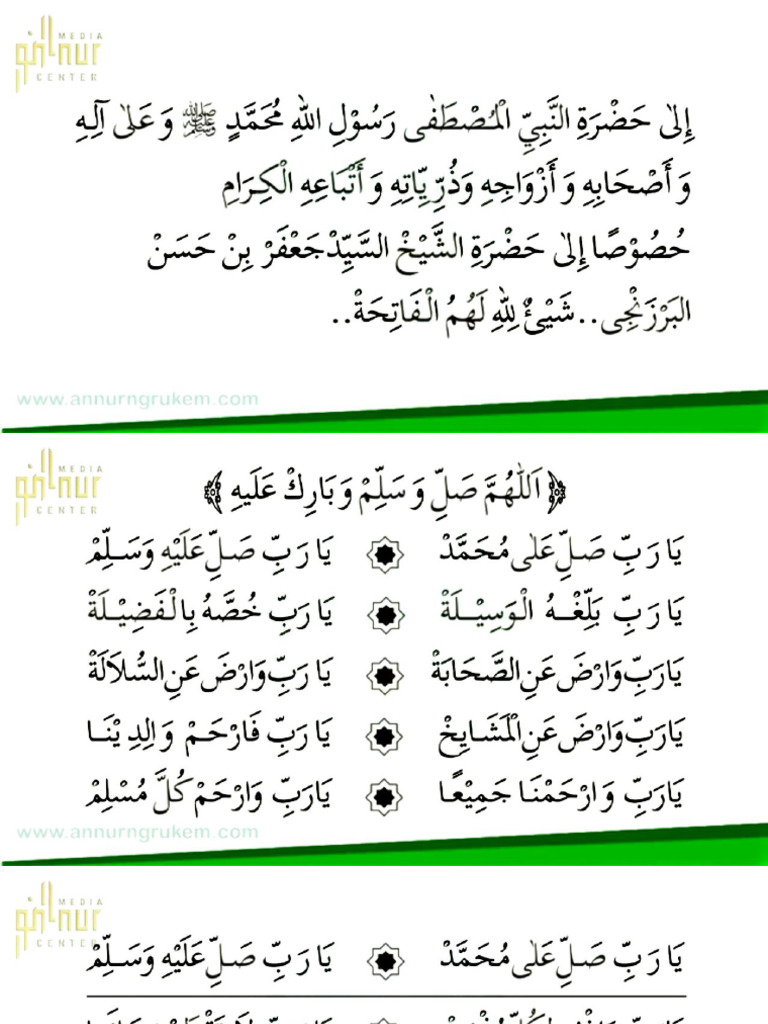 MEDIA
النور
nur
CENTER
إِلىٰ حَضْرَةِ النَّبِيِّ الْمُصْطَفٰى رَسُوْلِ اللهِ مُحَمَّدٍ ﷺ وَ عَلىٰ آلِهِ
وَ أَصْحَابِهِ وَ أَزْوَاجِهِ وَذُرِّيِّاتِهِ وَ أَتْبَاعِهِ الْكِرَامِ
حُصُوْصًا إِلىٰ حَضْرَةِ الشَّيْخْ السَّيِّدْ جَعْفَرْ بِنْ حَسَنْ
البَرْزَنْجِى..شَيْئٌ لِلّٰهِ لَهُمُ الْفَاتِحَةْ..
www.annurngrukem.com
MEDIA
النور
nur
CENTER
﴿اَللّٰهُمَّ صَلِّ وَ سَلِّمْ وَ بَارِكْ عَلَيهِ﴾
يَا رَبِّ صَلِّ عَلٰى مُحَمَّدْ ۞ يَا رَبِّ صَلِّ عَلَيْهِ وَسَلِّمْ
يَا رَبِّ بَلِّغْهُ الْوَسِيْلَةْ ۞ يَا رَبِّ خُصَّهُ بِالْفَضِيْلَةْ
يَارَبِّ وَارْضَ عَنِ الصَّحَابَةْ ۞ يَا رَبِّ وَارْضَ عَنِ السُّلاَلَةْ
يَارَبِّ وَارْضَ عَنِ الْمَشَايِخْ ۞ يَا رَبِّ فَارْحَمْ وَالِدِيْنَا
يَارَبِّ وَارْحَمْنَا جَمِيْعًا ۞ يَارَبِّ وَارْحَمْ كُلَّ مُسْلِمْ
www.annurngrukem.com
MEDIA
النور
nur
CENTER
يَا رَبِّ صَلِّ عَلٰى مُحَمَّدْ ۞ يَا رَبِّ صَلِّ عَلَيْهِ وَسَلِّمْ